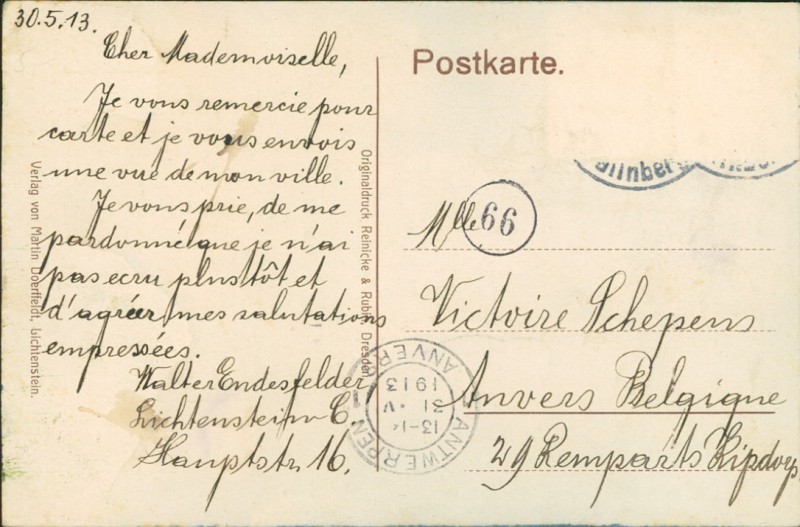 30.5.13.
Cher Mademoiselle,
Je vous remercie pour
carte et je vous envois
une vue de mon ville.
Je vous prie, de me
pardonné que je n'ai
pas ecru plustôt et
d'agréer mes salutations
empressées.
Walter Endesfelder,
Lichtenstein-C.
Hauptstr. 16.
Verlag von Martin Doerffeldt, Lichtenstein.
Originaldruck Reinicke & Rubin, Dresden
Postkarte.
66
Mlle
Victoire Schepens
Anvers Belgique
29 Remparts Kipdorp
ANTWERPEN 1
13-14
31 · V
1913
ANVER